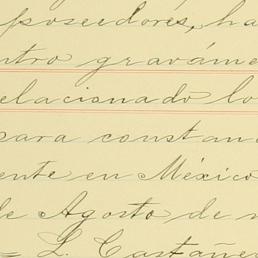 poseedores, ha
ntro graváme
elacionado lo
para constan
ente en México
de Agosto de m
= L. Castañe